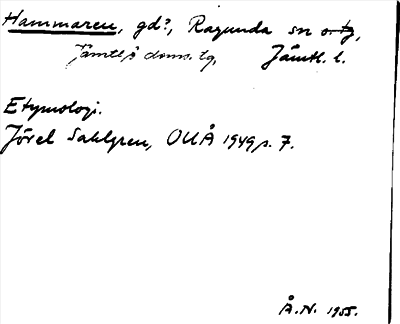 Hammaren, gd?, Ragunda sn o. tg,
Jämtl:s doms. tg, Jämtl. l.
Etymologi.
Jöran Sahlgren, OUÅ 1949 s. 7.
Å.N. 1955.